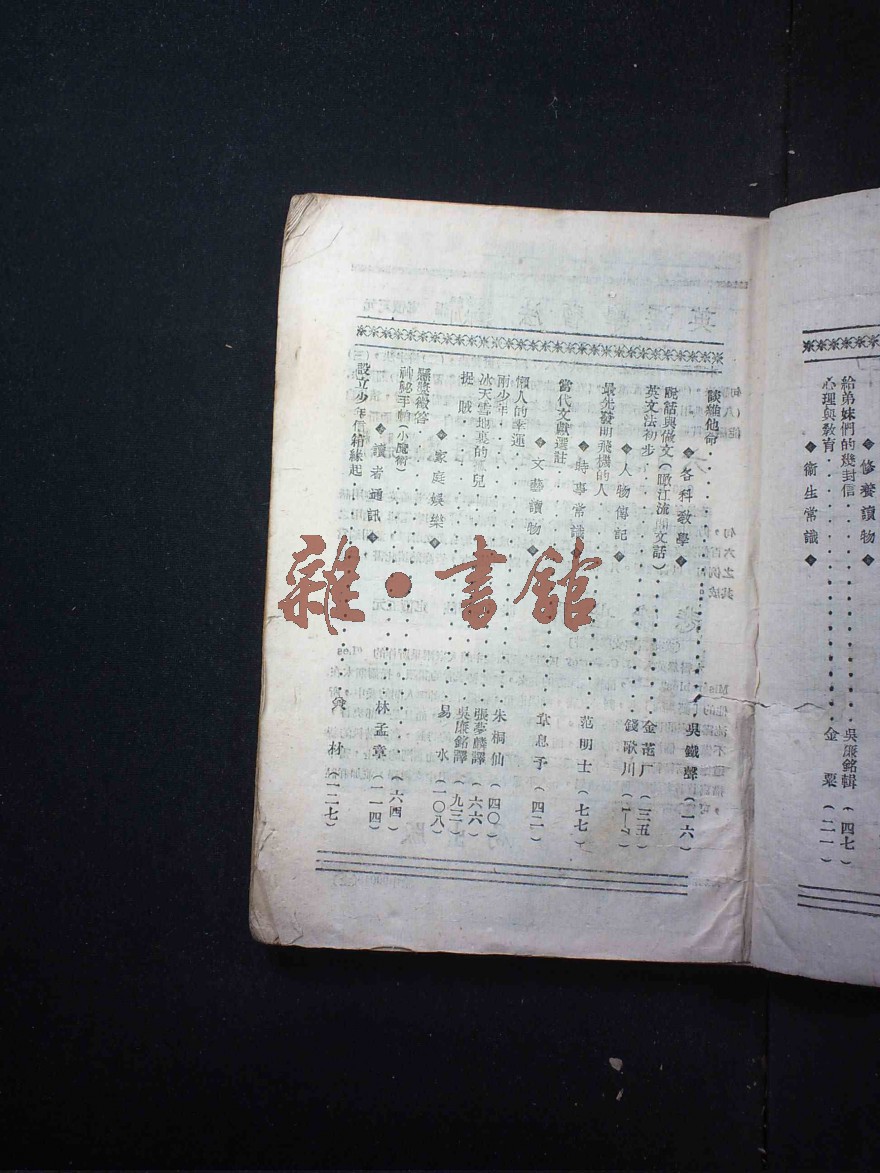 ◆修養讀物◆
給弟妹們的幾封信‥‥‥‥吳廉銘輯(四七)
心理與教育‥‥‥‥金粟(二一)
◆衛生常識◆
談維他命‥‥‥‥吳鐵聲(一六)
◆各科教學◆
說話與做文(瞰江流閒文話)‥‥‥‥金諾厂(三五)
英文法初步‥‥‥‥錢歌川(一一)
◆人物傳記◆
最先發明飛機的人‥‥‥‥范明士(七七)
◆時事常識
當代文獻選註‥‥‥‥章息予(四二)
◆文藝讀物◆
懶人的幸運‥‥‥‥朱桐仙(四〇)
兩少年‥‥‥‥張夢麟譯(六六)
冰天雪地裏的孤兒‥‥‥‥吳廉銘譯(九三)
捉賊‥‥‥‥易水(一〇八)
◆家庭娛樂◆
懸獎徵答‥‥‥‥(六四)
神秘手帕(小魔術)‥‥‥‥林孟章(一一四)
◆讀者通訊◆
設立少年信箱緣起‥‥‥‥材(一二七)
雜·書館